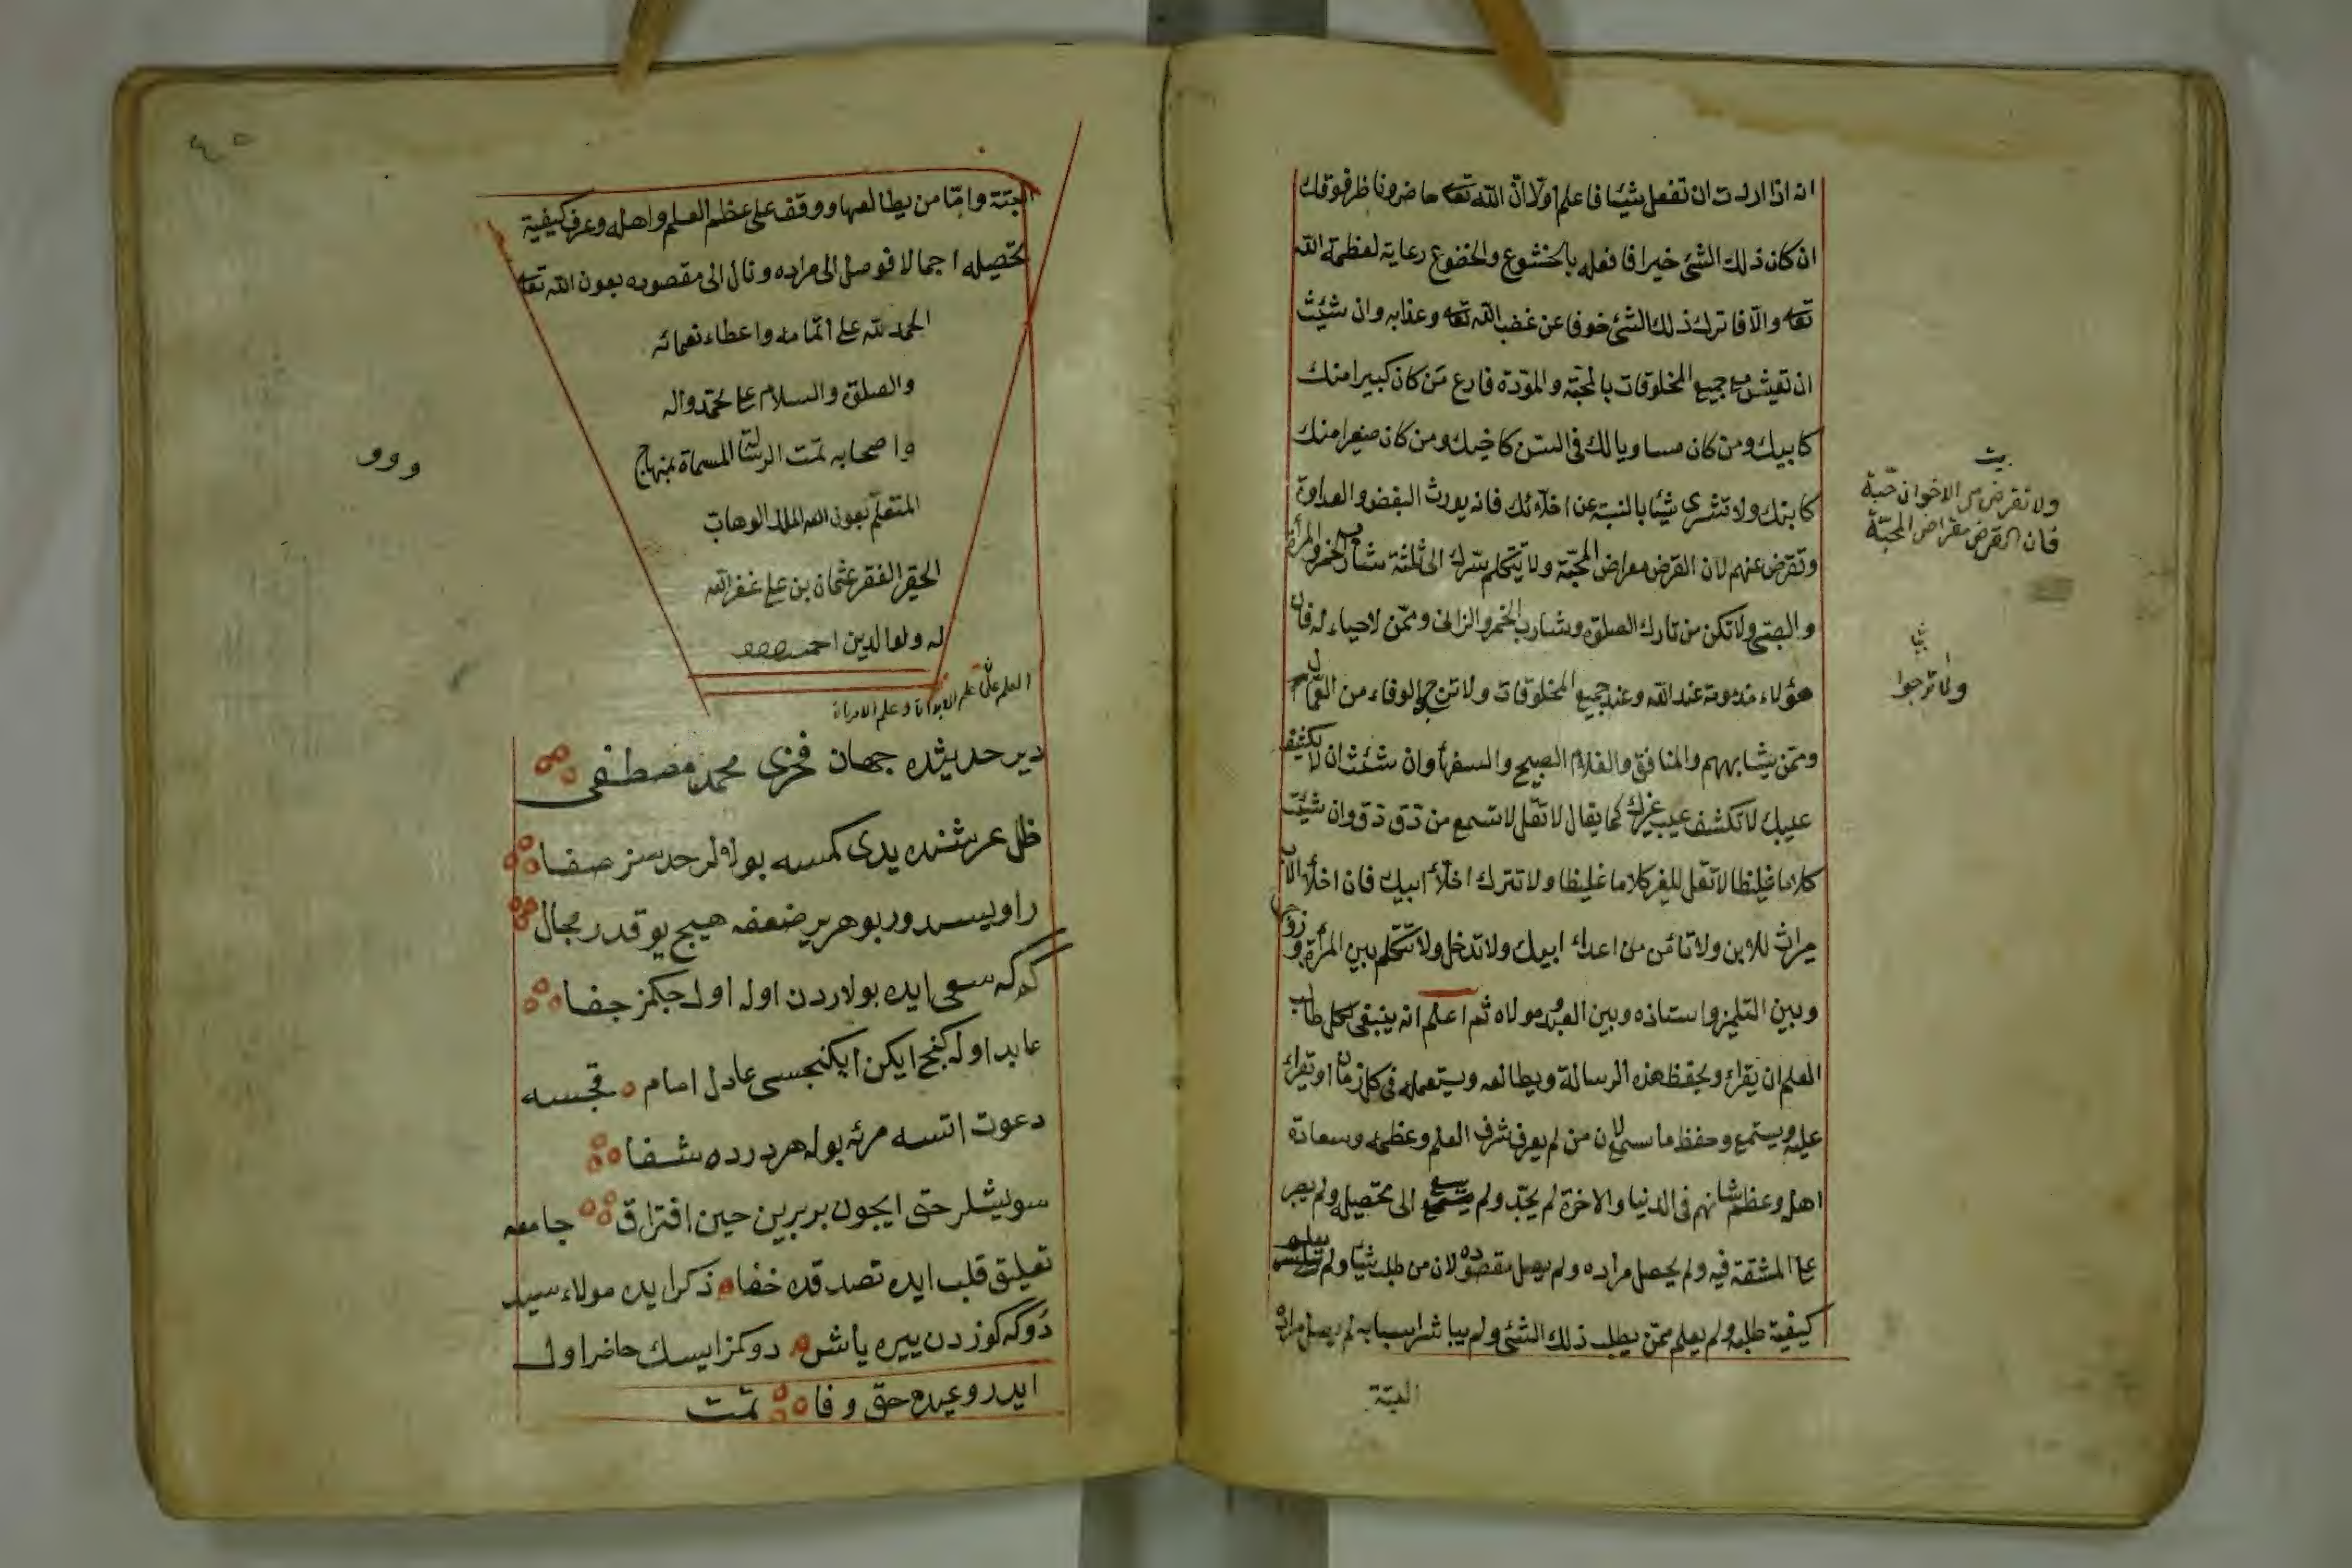 انه اذا اردت ان تفعل شيئا فاعلم اولا ان الله تعا حاضر وناظر فوقك
ان كان ذلك الشئ خيرا فافعله بالخشوع والخضوع رعاية لعظمة الله
تعا والا فاترك ذلك الشئ خوفا عن غضب الله تعا وعذابه وان شئت
ان تعيش مع جميع المخلوقات بالمحبة والمودة فارع من كان كبيرا منك
كابيك ومن كان مساويا لك فى السن كاخيك ومن كان صغيرا منك
كابنك ولا تشرى شيئا بالنسية عن اخلائك فانه يورث البغض والعداوة
وتقرض عنهم لان القرض مقراض المحبة ولا يتكلم سرك الى ثلثة شارب الخمر والمرأة
والصبى ولا تكن من تارك الصلوة وشارب الخمر والزانى وممن لا حياء له فان
هؤلاء مذمومة عند الله وعند جميع المخلوقات ولا ترج الوفاء من
وممن يشابههم والمنافق والغلام الصبيح والسفهاء وان شئت ان لا يكشف
عيبك لا تكشف عيب غيرك كما يقال لا تقل لا تسمع من دق دق وان شئت
كلاما غليظا لا تقل للغير كلاما غليظا ولا تترك اخلاء ابيك فان اخلاء الاب
ميراث للابن ولا تأمن من اعداء ابيك ولا تدخل ولا تتكلم بين المرأة وزوجها
وبين التلميذ واستاذه وبين العبد ومولاه ثم اعلم انه ينبغى لكل طالب
العلم ان يقراء ويحفظ هذه الرسالة ويطالعه ويستعمله فى كل زمان او تقراء
عليه ويستمع وحفظ ما سمع لان من لم يعرف شرف العلم وعظمه وسعادة
اهله وعظم شانهم فى الدنيا والاخرة لم يجد ولم يسع الى تحصيله ولم يصبر
على المشقة فيه ولم يحصل مراده ولم يصل مقصوده لان من طلب شيئا ولم يعلم
كيفية طلبه ولم يعلم ممن يطلب ذلك الشئ ولم يباشر اسبابه لم يصل مراده
البتة
بيت
ولا تقرض من الاخوان حبة
فان القرض مقراض المحبة
ولا ترجوا
البتة واما من يطالعها ووقف على عظم العلم واهله وعرف كيفية
تحصيله اجمالا فوصل الى مراده ونال الى مقصوده بعون الله تعا
الحمد لله على اتمامه واعطاء نعمائه
والصلوة والسلام على محمد واله
واصحابه تمت الرسالة المسماة بمنهاج
المتعلم بعون الله الملك الوهاب
الحقير الفقير عثمان بن على غفر الله
له ولوالديه
العلم علمان علم الابدان وعلم الاديان
دير حديثده جهان فخرى محمد مصطفى
ظل عرشنده يدى كمسه بولالر حدسز صفا
راويسدور بوهرير ضعفه هيچ يوقدر مجال
كركه سعى ايده بولاردن اوله اول چكمز جفا
عابد اوله كنج ايكن ايكنجسى عادل امام قجسه
دعوت اتسه مرئه بوله هر درده شفا
سويشلر حق ايچون بربرين حين افتراق جامعه
تعليق قلب ايده تصدقده خفا ذكر ايده مولاء سيد
دوكه كوزدن ييره ياش دوكمز ايسك حاضر اول
ايدر وعيده حق وفا تمت
ووو